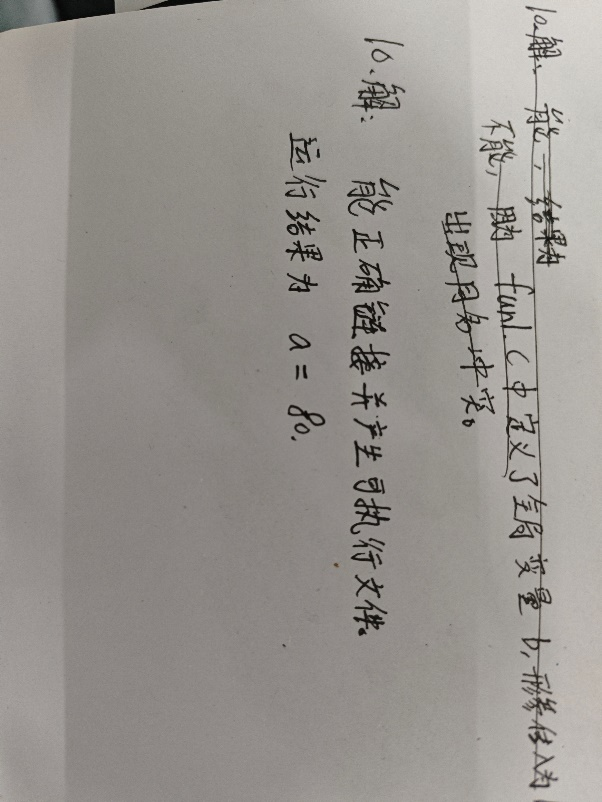 10.解: 能,结果为
不能,因为 fun1.c中定义了全局变量b,形参传入为
出现同名冲突。
10.解: 能正确链接并产生可执行文件。
运行结果为 a=80.